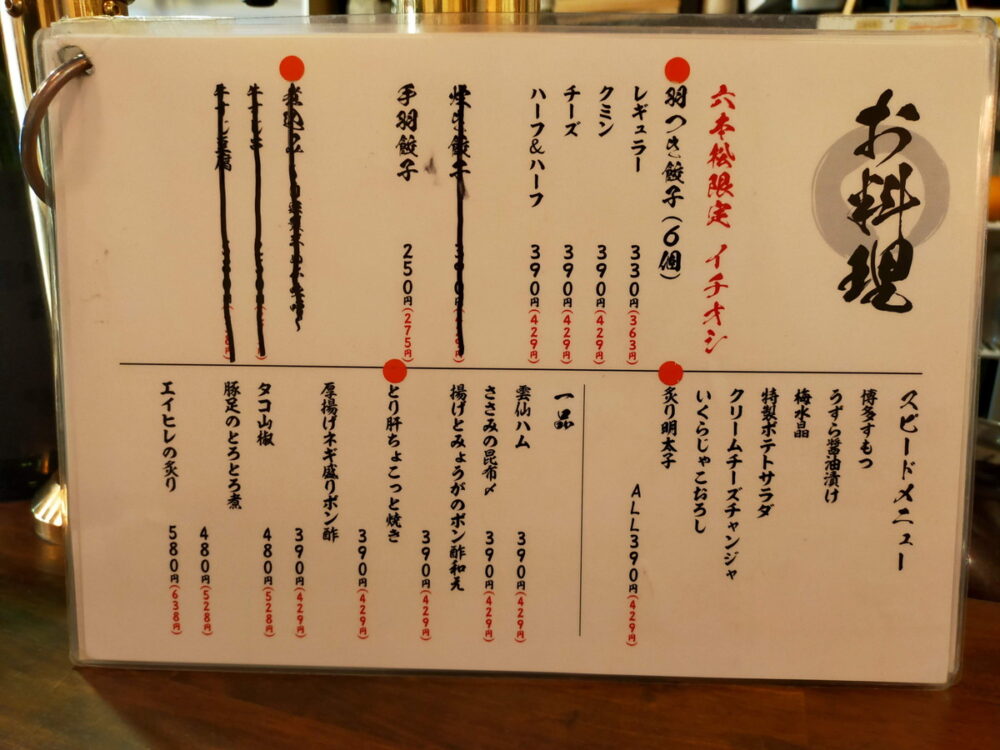 お料理
六本松限定 イチオシ
羽つき餃子(6個)
レギュラー 330円(363円)
クミン 390円(429円)
チーズ 390円(429円)
ハーフ&ハーフ 390円(429円)
手羽餃子 250円(275円)
スピードメニュー
博多すもつ
うずら醤油漬け
梅水晶
特製ポテトサラダ
クリームチーズチャンジャ
いくらじゃこおろし
炙り明太子
ALL390円(429円)
一品
雲仙ハム 390円(429円)
ささみの昆布〆 390円(429円)
揚げとみょうがのポン酢和え 390円(429円)
とり肝ちょこっと焼き 390円(429円)
厚揚げネギ盛りポン酢 390円(429円)
タコ山椒 480円(528円)
豚足のとろとろ煮 480円(528円)
エイヒレの炙り 580円(638円)